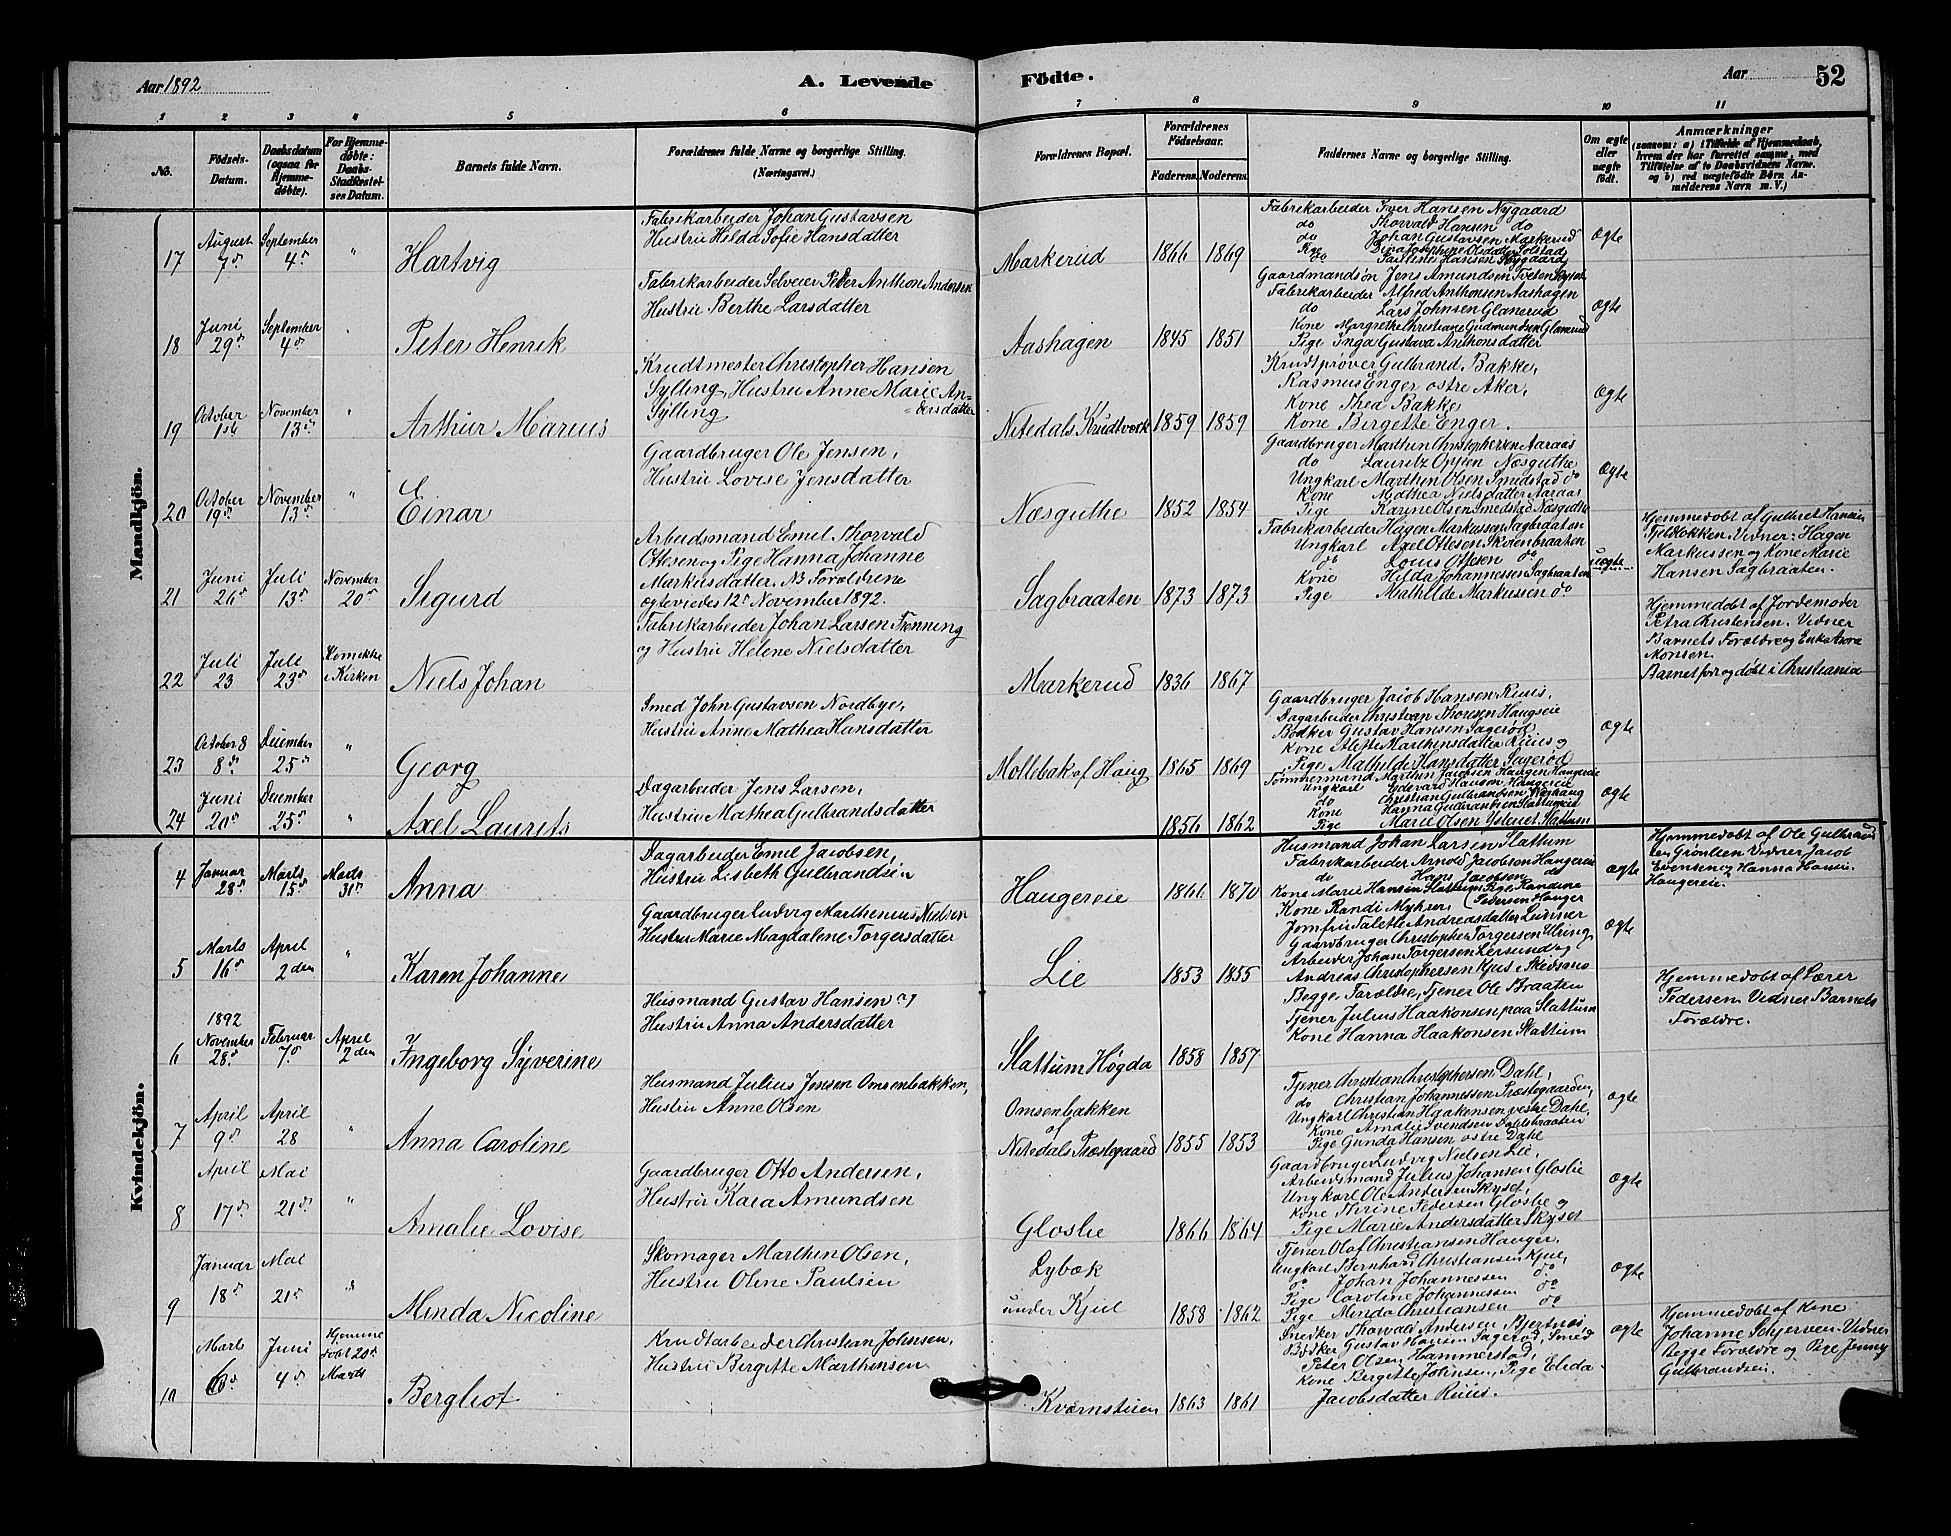 Aar 1892
A. Levende
Födte.
Aar
52
1 2 3 4 5 6 7 8 9 10 11
No.
Födsels-
Datum.
Daabsdatum
(ogsaa for
Hjemme-
døbte).
For Hjemme-
døbte:
Daabs-
Stadfæstel-
ses Datum.
Barnets fulde Navn.
Forældrenes fulde Navne og borgerlige Stilling.
(Næringsvei.)
Forældrenes Bopæl.
Forældrenes
Födselsaar.
Faderens. Moderens.
Faddernes Navne og borgerlige Stilling.
Om ægte
eller
uægte
födt.
Anmærkninger
(saasom: a) i Tilfælde af Hjemmedaab,
hvem der har forrettet samme, med
Tilföielse af to Daabsvidners Navne.
og b) ved uægtefödte Börn An-
melderens Navn m. V.)
Mandkjön.
17
August
7d
September
4d
"
Hartvig
Fabrikarbeider Johan Gustavsen
Hustru Hilda Sofie Hansdatter
Markerud
1866 1869
Fabrikarbeider Iver Hansen Nygaard
do Thorvald Hansen do
do Johan Gustavsen Markerud
Pige Dina Josephine Olsdatter Tolstad
do Pauline Hansen Nygaard
Ægte
18
Juni
29d
September
4d
"
Peter Henrik
Fabrikarbeider Selveier Peder Anthon Andersen
Hustru Berthe Larsdatter
Aashagen
1845 1851
Gaardmandsön Jens Amundsen Tveten Skyset
Fabrikarbeider Alfred Anthonsen Aashagen
do Lars Johnsen Glanerud
Kone Margrethe Christiane Gudmundsen Glanerud
Pige Inga Gustava Anthonsdatter
Ægte
19
October
1ste
November
13d
"
Arthur Marius
Krudtmester Christopher Hansen
Sylling, Hustru Anne Marie An-
Sylling dersdatter
Nitedals Krudtverk
1859 1859
Krudtprøver Gulbrand Bakke,
Rasmus Enger østre Aker,
Kone Thea Bakke,
Kone Bergette Enger.
Ægte
20
October
19d
November
13d
"
Einar
Gaardbruger Ole Jensen,
Hustru Lovise Jensdatter
Næsguthe
1852 1854
Gaardbruger Marthin Christophersen Aaraas
do Lauritz Oppen Næsguthe
Ungkarl Marthin Olsen Smedstad do
Kone Mathea Nielsdatter Aaraas
Pige Karine Olsen Smedstad Næsguthe
Ægte
21
Juni
26d
Juli
13d
November
20d
Sigurd
Arbeidsmand Emil Thorvald
Ottesen og Pige Hanna Johanne
Markusdatter. NB Forældrene
ægteviedes 12d November 1892.
Sagbraaten
1873 1873
Fabrikarbeider Hagen Markussen Sagbraaten
Ungkarl Axel Ottesen Skolenbraaten
do Louis Ottesen do
Kone Hilda Johannessen Sagbraaten
Pige Mathilde Markussen do
uægte
Hjemmedøbt af Gulbret Hansen
Fjeldlokken Vidner: Hagen
Markussen og Kone Marie
Hansen Sagbraaten.
22
Juli
23
Juli
23d
Kom ikke
i Kirken
Niels Johan
Fabrikarbeider Johan Larsen Frenning
og Hustru Helene Nielsdatter
Markerud
1836 1867
Hjemmedøbt af Jordemoder
Petra Christensen. Vidner
Barnets Forældre og Enke Anna
Monsen.
Barnet foregdøbt i Christiania
23
October 8
8de
December
25d
"
Georg
Smed John Gustavsen Nordbye,
Hustru Anne Mathea Hansdatter
Mollebak af Haug
1865 1869
Gaardbruger Jacob Hansen Ruus,
Dagarbeider Christian Thoresen Haugseie
Bødker Gustav Hansen Sagerød,
Kone Alette Marthinsdatter Ruus og
Pige Mathilde Hansdatter Sagerød
Ægte
24
Juni
20d
December
25d
"
Axel Laurits
Dagarbeider Jens Larsen,
Hustru Mathea Gulbrandsdatter
1856 1862
Tømmermand Marthin Jacobsen Haugen Haugereie
Ungkarl Edevard Hansen, Haugereie
do Christian Gulbrandsen
Kone Hanna Gulbrandsen Slattumeie
Pige Marie Olsen Slattum
Ægte
Kvindekjön.
4
Januar
28d
Marts
15d
Marts
31d
Anna
Dagarbeider Emil Jacobsen,
Hustru Lisbeth Gulbrandsen
Haugereie
1866 1870
Husmand Johan Larsen Slattum
Fabrikarbeider Arnold Jacobsen Haugereie
do Hans Jacobsen do
Kone Marie Hansen Slattum Pige Randine
Kone Randi Myhrer, (Pedersen Hauger
Ægte
Hjemmedøbt af Ole Gulbrand
sen Grønlien Vidner Jacob
Evensen og Hanna Hansen
Haugereie.
5
Marts
16d
April
2den
"
Karen Johanne
Gaardbruger Ludvig Marthenius Nielsen
Hustru Marie Magdalene Torgersdatter
Lie
1853 1855
Jomfru Talette Andreasdatter Ludner
Gaardbruger Christopher Torgersen Ulring
Arbeider Johan Torgersen Lersund og
Andreas Christophersen Kjus i Skedsmo
Ægte
6
1892
November
28d
Februar
7d
April
2den
Ingeborg Syverine
Husmand Gustav Hansen og
Hustru Anna Andersdatter
Slattum Høgda
1858 1857
Begge Forældre, Tjener Ole Braaten
Tjener Julius Haakonsen paa Slattum
Kone Hanna Haakonsen Slattum
Hjemmedøbt af Lærer
Pedersen Vidner Barnets
Forældre.
7
April
9d
April
28
"
Anna Caroline
Husmand Julius Jensen Omsenbakken,
Hustru Anne Olsen
Omsenbakken
af
Nitedals Præstegaard
1855 1853
Tjener Christian Christophersen Dahl,
do Christian Johannessen Præstegaarden,
Ungkarl Christian Haakensen vestre Dahl,
Kone Amalie Svendsen Dahlsbraaten
Pige Gunda Hansen østre Dahl
ægte
8
April
17d
Mai
21d
"
Amalie Lovise
Gaardbruger Otto Andersen,
Hustru Kaia Amundsen
Gloslie
1866 1864
Gaardbruger Ludvig Nielsen Lie,
Arbeidsmand Julius Johansen Gloslie
Ungkarl Ole Andersen Skyset,
Kone Thrine Pedersen Gloslie og
Pige Marie Andersdatter Skyset
ægte
9
Januar
18d
Mai
21d
"
Minda Nicoline
Skomager Marthin Olsen,
Hustru Oline Paulsen
Lybæk
under Kjul
1858 1862
Tjener Olaf Christiansen Hauger,
Ungkarl Bernhard Christiansen Kjul,
do Johan Johannessen do
Pige Caroline Johannessen do
Pige Minda Christiansen do
ægte
10
Marts
6d
Juni
4d
Hjemme
døbt 20d
Marts
Bergliot
Krudtarbeider Christian Johnsen,
Hustru Bergette Marthinsen
Kværnstuen
1863 1861
Snedker Thorvald Andersen Bjertnæs
Bødker Gustav Hansen Sagerød, Smed
Peter Olsen Hammerstad,
Kone Bergette Johnsen, Pige Elida
Jacobsdatter Ruus.
ægte
Hjemmedøbt af Kone
Johanne Schjerven. Vidner
begge Forældre og Pige Jenny
Gulbrandsen.